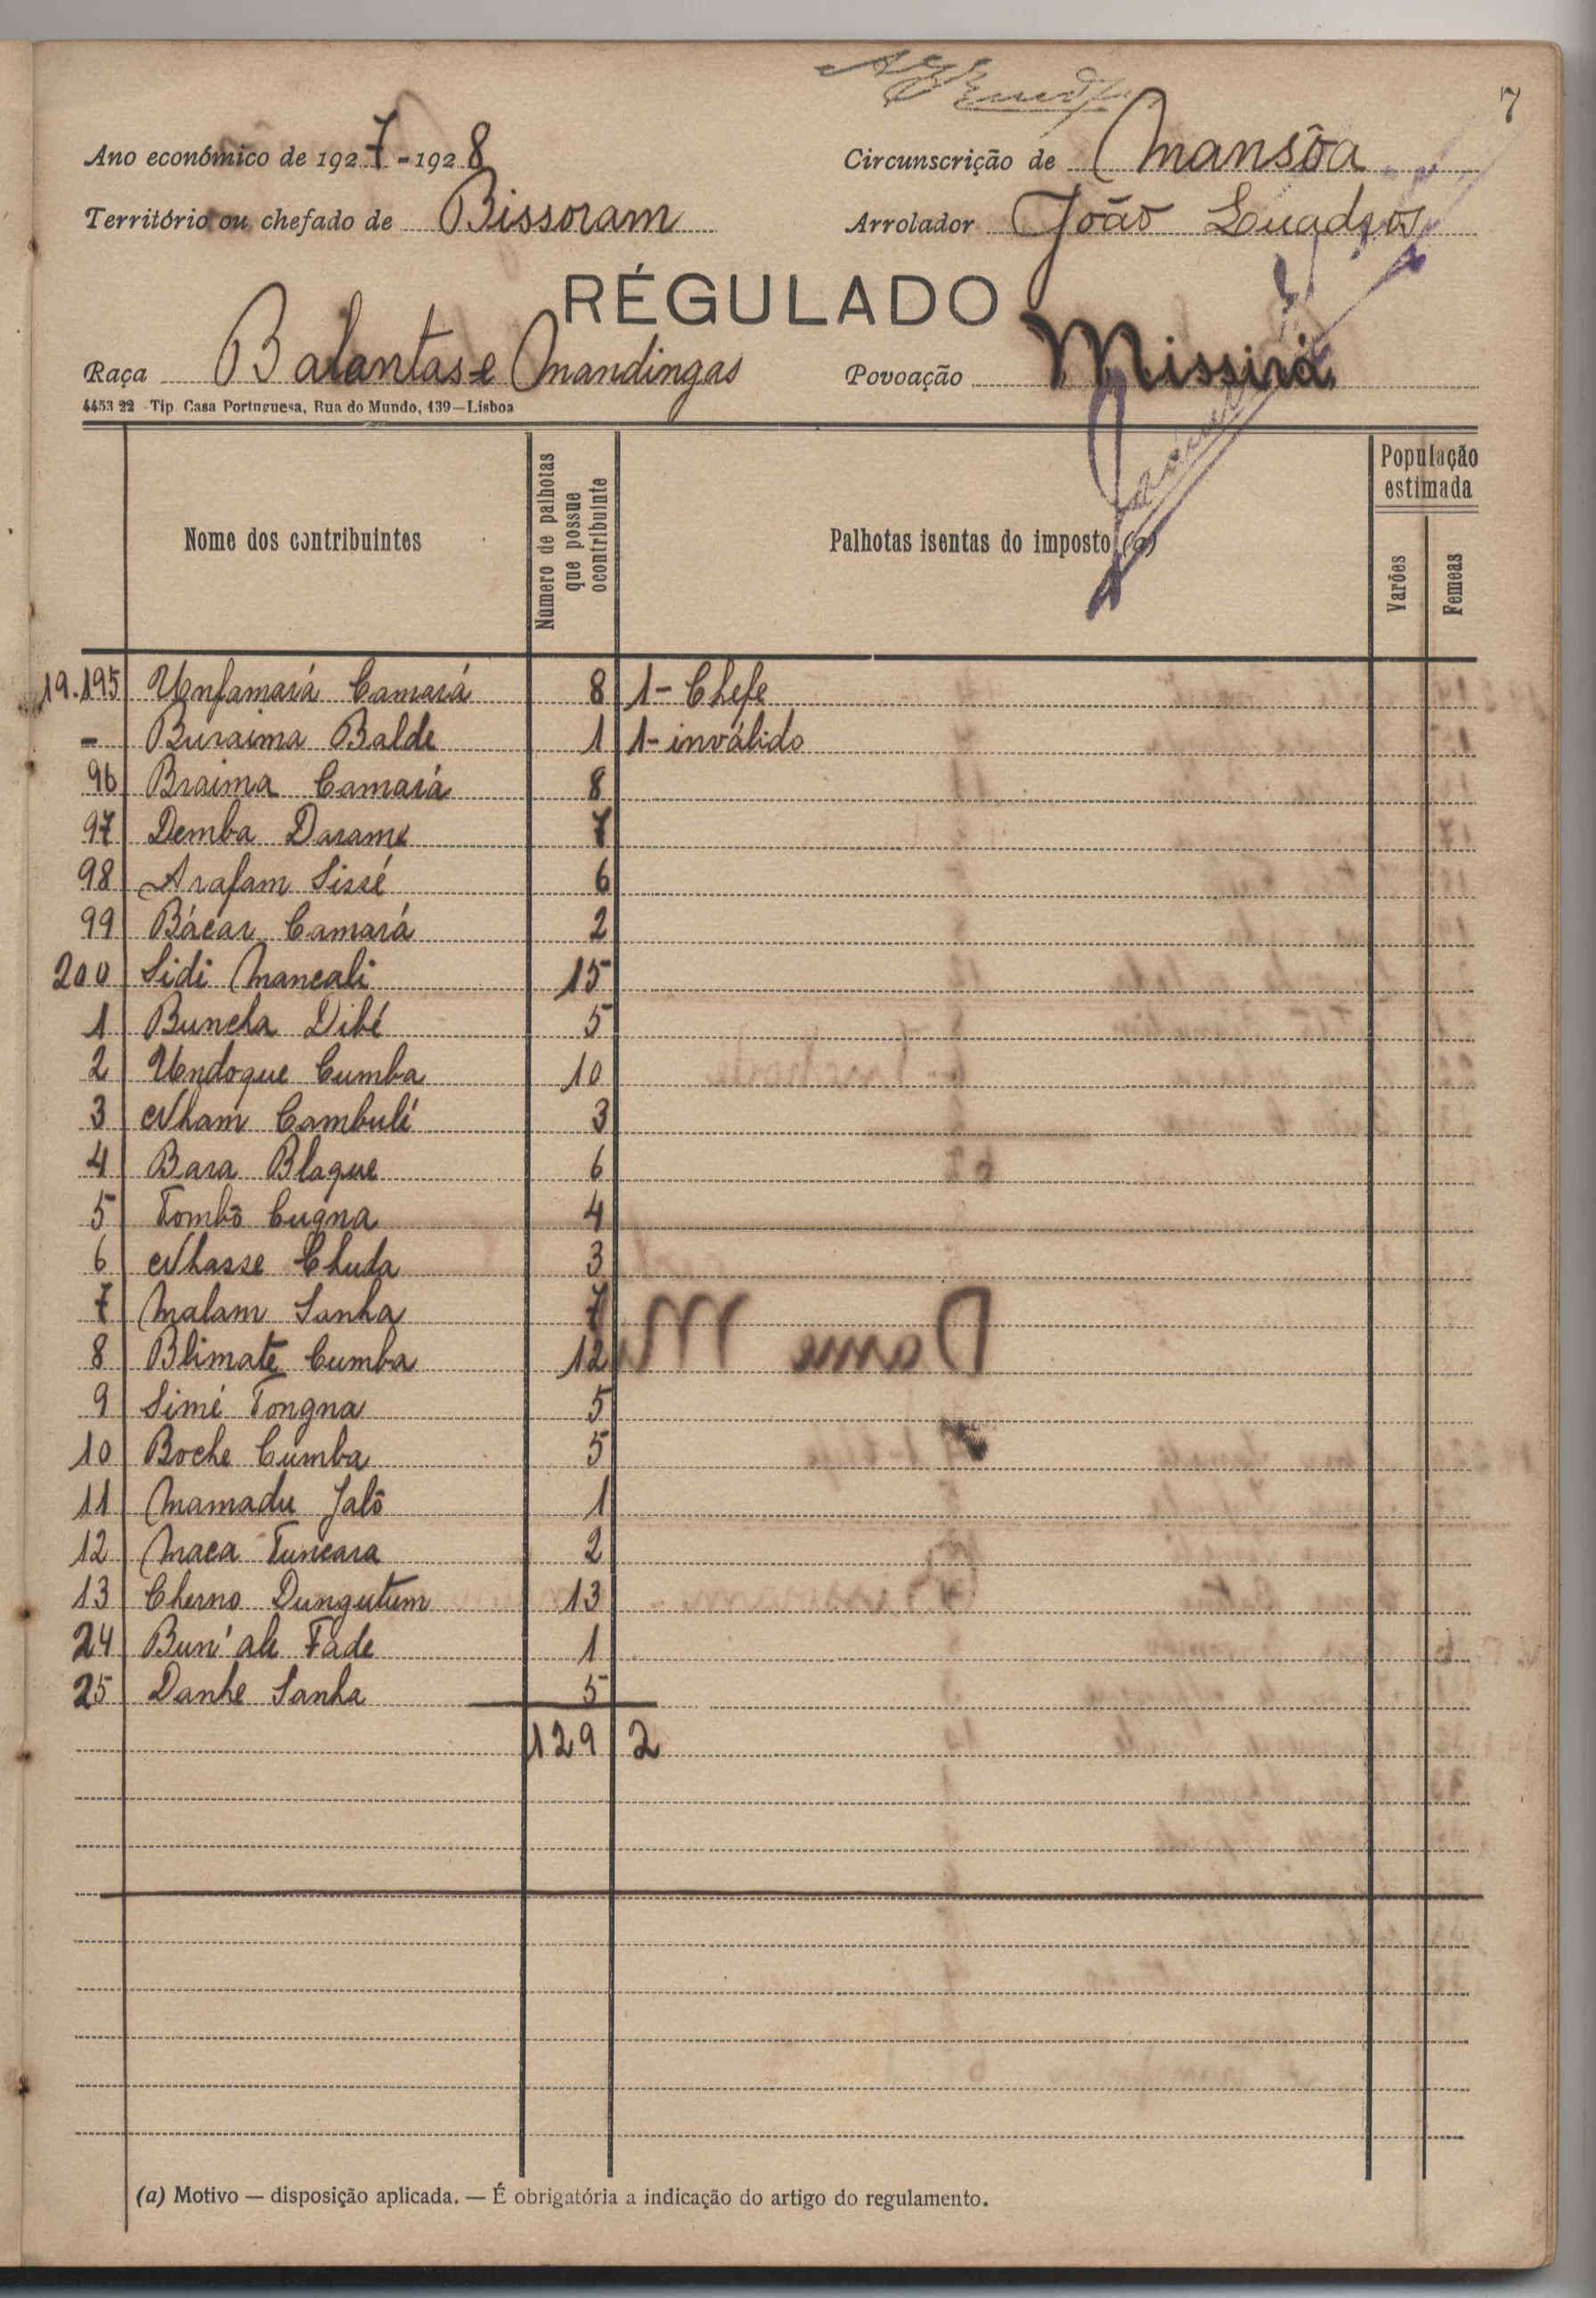 7
Ano económico de 1927-1928 Circunscrição de Mansôa
Território ou chefado de Bissoram Arrolador João
RÉGULADO
Raça Balantas e Mandingas Povoação Missirá
4453 22 Tip. Casa Portuguesa, Rua do Mundo, 139—Lisboa
Nome dos contribuintes
Número de palhotas que possue o contribuinte
Palhotas isentas do imposto (a)
População estimada
Varões
Femeas
19.195 Unfamará Camará 8 1- Chefe
- Buraima Balde 1 1- inválido
96 Braima Camará 8
97 Demba Darame 7
98 Arafam Sissé 6
99 Bácar Camará 2
200 Sidi Mancali 15
1 Buncha Dibé 5
2 Undoque Cumba 10
3 Nham Cambulé 3
4 Bara Blaque 6
5 Tombô Cugna 4
6 Nhasse Chuda 3
7 Malam Sanha 7
8 Blimate Cumba 12
9 Simé Tongna 5
10 Boche Cumba 5
11 Mamadu Jalô 1
12 Maca Tuncara 2
13 Cherno Dungutum 13
24 Bun'ah Fade 1
25 Danhe Sanha 5
129 2
(a) Motivo — disposição aplicada. — É obrigatória a indicação do artigo do regulamento.